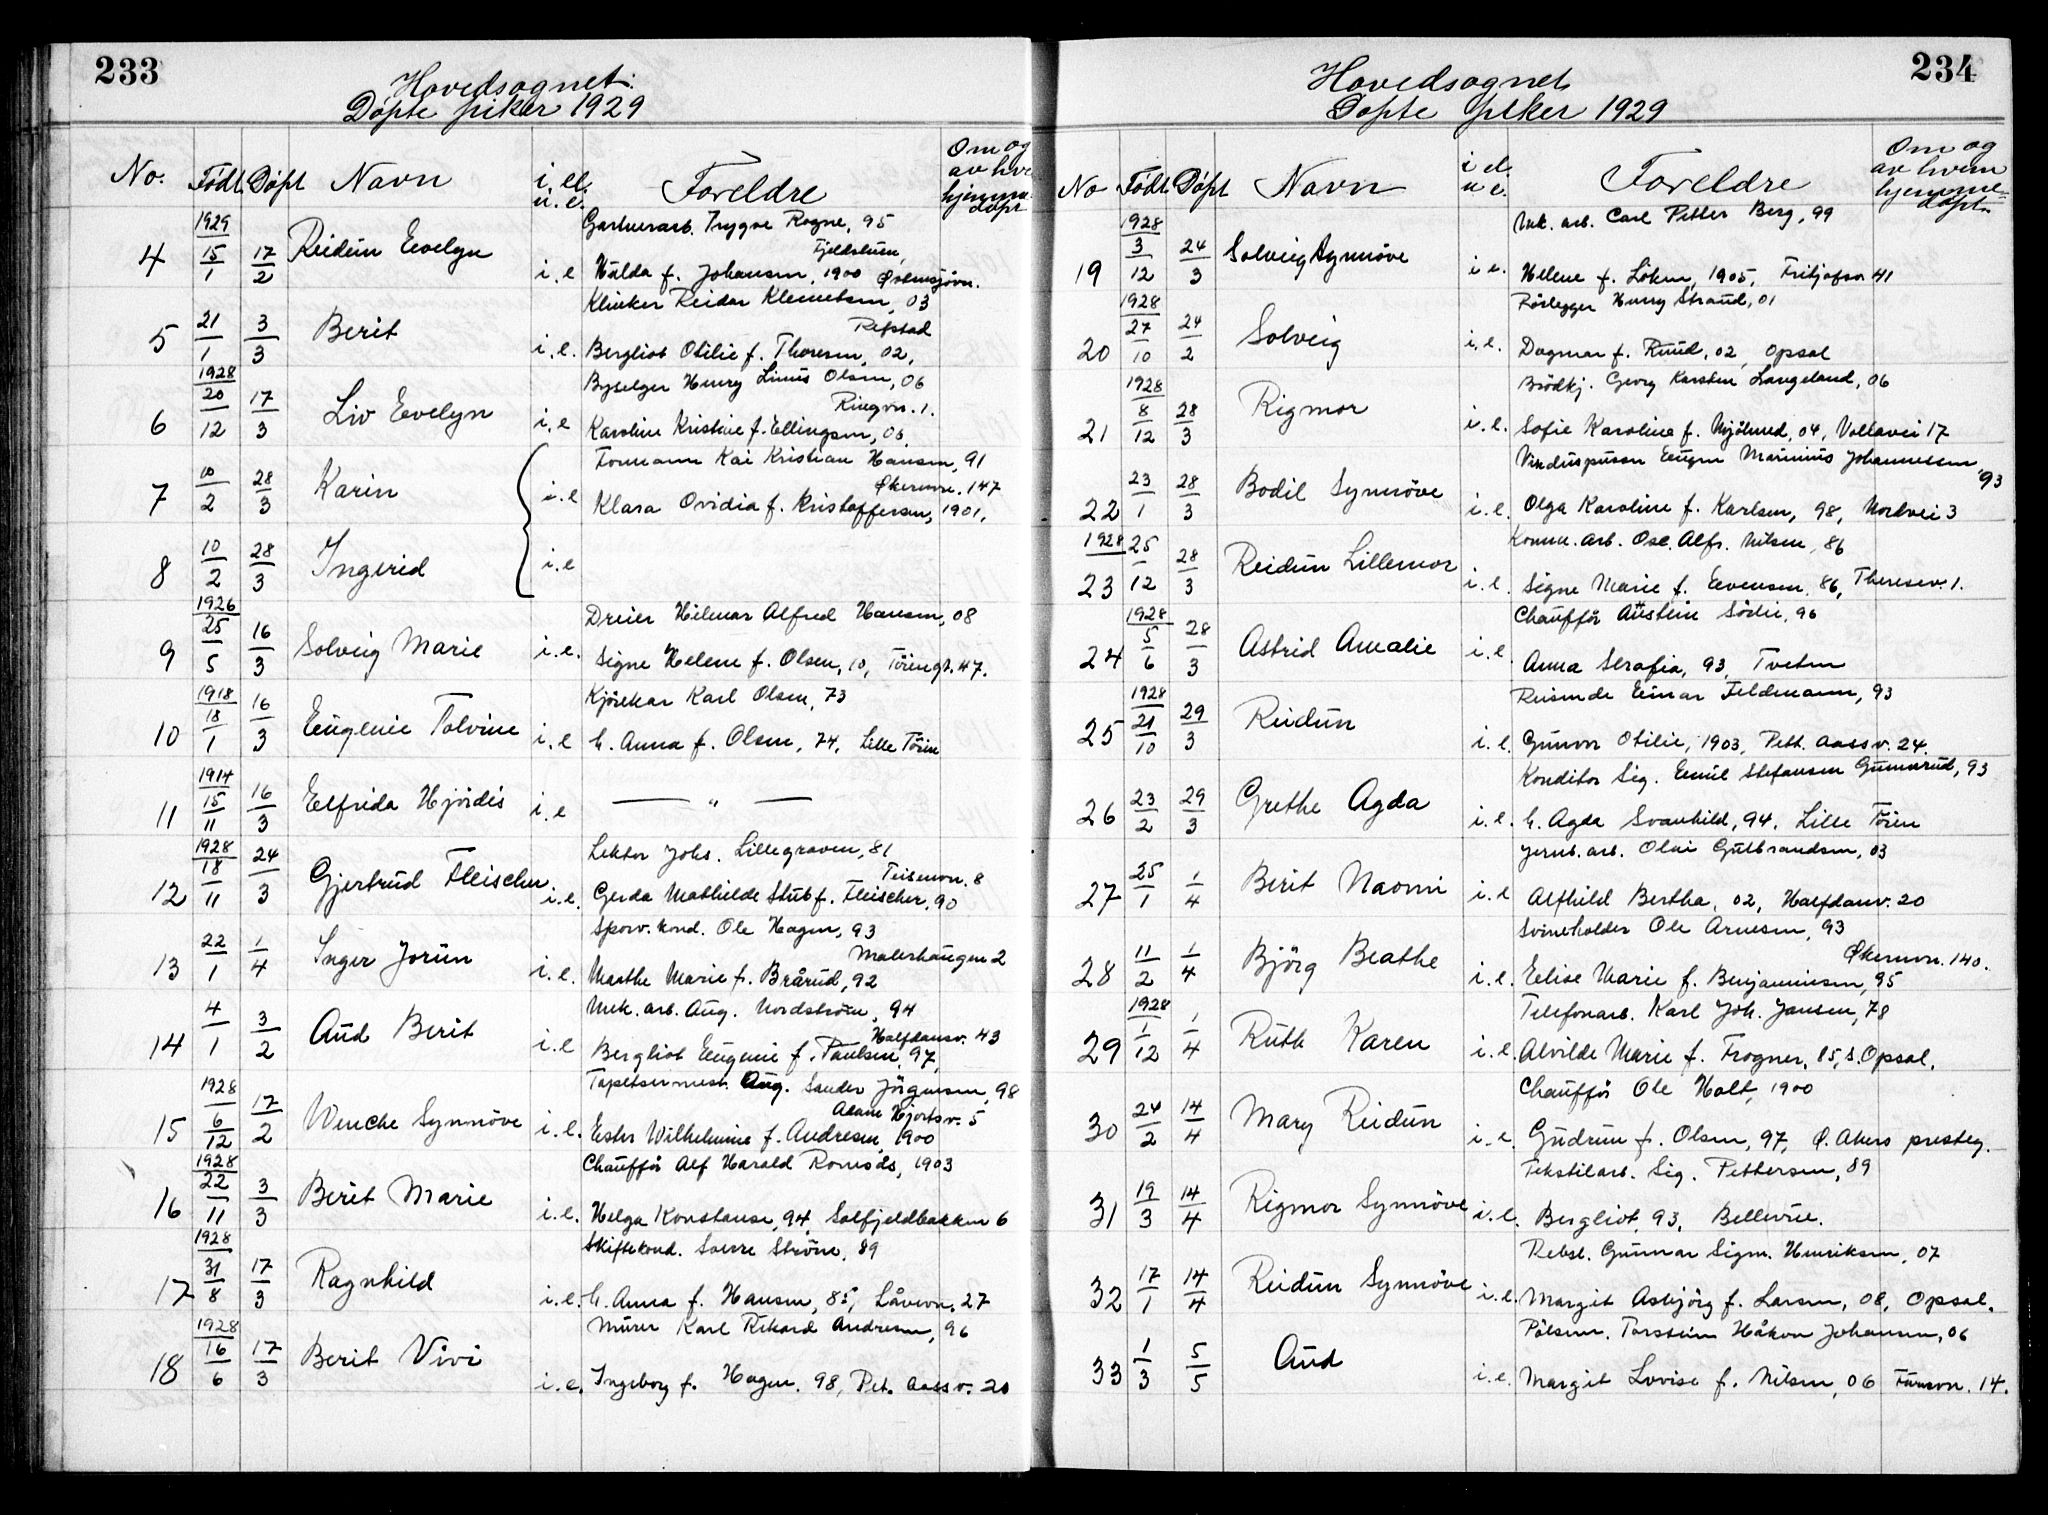 233
Hovedsognet.
Døpte piker 1929
No. Født. Døpt Navn i. el. u. e. Foreldre Om og av hv hjemme døpt
4 1929 15/1 17/2 Reidun Evelyn i. e Gartnerarb. Trygve Rogne, 95
Hulda f. Johansen, 1900 Østensjøvn.
5 21/1 3/3 Berit i. e. Klinker Reidar Klemetsen, 03
Refstad
Bergliot Otilie f. Thoresen, 02.
6 1928 20/12 17/3 Liv Evelyn i. e Byselger Henry Linus Olsen, 06
Ringvn. 1.
Karoline Kristine f. Ellingsen, 06.
7 10/2 28/3 Karin i. e Formann Kai Kristian Hansen, 91
Økernvn. 147
Klara Ovidia f. Kristoffersen, 1901.
8 10/2 28/3 Ingerid i. e
9 1926 25/5 16/3 Solveig Marie i. e. Dreier Hilmar Alfred Hansen, 08
Signe Helene f. Olsen, 10, Töiengt. 47.
10 1918 18/1 16/3 Eugenie Tolvine i. e Kjörekar Karl Olsen, 73
h. Anna f. Olsen, 74, Lille Töien
11 1914 15/11 16/3 Elfrida Hjördis i. e — " —
12 1928 18/11 24/3 Gjertrud Fleischer i. e. Lektor Johs. Lillegraven, 81
Teisenvn. 8
Gerda Mathilde Stub f. Fleischer, 90
13 22/1 1/4 Inger Jorun i. e. Sporv. kond. Ole Hagen, 93
Malerhaugen 2
Marthe Marie f. Brårud, 92
14 4/1 3/2 Aud Berit i. e Mek. arb. Aug. Nordström, 94
Halfdansv. 43
Bergliot Eugenie f. Paulsen, 97,
15 1928 6/12 17/2 Wenche Synnöve i. e. Tapetsermest. Aug. Sander Jörgensen, 98
Adam Hjortsv. 5
Ester Wilhelmine f. Andresen, 1900
16 1928 22/11 3/3 Berit Marie i. e. Chaufför Alf Harald Romsås, 1903
Helga Konstanse, 94, Solfjeldbakken 6
17 1928 31/8 17/3 Ragnhild i. e. Skiftekond. Sverre Ström, 89
h. Anna f. Hansen, 85, Låvevn, 27
18 1928 16/6 17/3 Berit Vivi i. e. Murer Karl Rikard Andresen, 96
Ingeborg f. Hagen, 98, Pet. Aass v. 20
234
Hovedsognet
Døpte piker 1929
No Født. Døpt Navn i el. u e. Foreldre Om og av hvem hjemme- døpt.
19 1928 3/12 24/3 Solveig Synnöve i e. Mek. arb. Carl Petter Berg, 99
Helene f. Löken, 1905, Fritjofsv 41
20 1928 27/10 24/2 Solveig i. e. Rörlegger Henry Strand, 01
Dagmar f. Ruud, 02, Opsal
21 1928 8/12 28/3 Rigmor i. e. Brödkj. Georg Karsten Langeland, 06
Sofie Karoline f. Mjölnerd, 04, Vollavei 17
22 23/1 28/3 Bodil Synnöve i. e. Vinduspusser Eugen Marinius Johannessen, 93
Olga Karoline f. Karlsen, 98, Nordvei 3
23 1928 25/12 28/3 Reidun Lillemor i. e. Komm. arb. Osc. Alfr. Nilsen, 86
Signe Marie f. Evensen, 86, Theresev. 1.
24 1928 5/6 28/3 Astrid Amalie i. e. Chaufför Austein Södie, 96
Anna Serafia, 93, Tveten
25 1928 21/10 29/3 Reidun i. e. Reisende Einar Feldmann, 93
Gunvor Otilie, 1903, Pett. Aass v. 24.
26 23/2 29/3 Grethe Agda i. e. Konditor Sig. Emil Stefansen Gunnerud, 93
h. Agda Svanhild, 94, Lille Töien
27 25/1 1/4 Berit Naomi i. e Jernb. arb. Olai Gulbrandsen, 03
Alfhild Bertha, 02, Halfdanv. 20
28 11/2 1/4 Björg Beathe i. e. Svineholder Ole Arnesen, 93
Økernvn. 140.
Elise Marie f. Benjaminsen, 95
29 1928 1/12 1/4 Ruth Karen i. e. Telefonarb. Karl Joh. Jansen, 78
Alvilde Marie f. Frogner, 85, S. Opsal.
30 24/2 14/4 Mary Reidun i. e. Chaufför Ole Holt, 1900
Gudrun f. Olsen, 97, Ø. Akers presteg.
31 19/3 14/4 Rigmor Synnöve i. e. Tekstilarb. Sig. Pettersen, 89
Bergliot, 93, Bellevue.
32 17/1 14/4 Reidun Synnöve i. e. Rebsl. Gunnar Sigm. Henriksen, 07
Margit Asbjörg f. Larsen, 08, Opsal.
33 1/3 5/5 Aud i. e. Pölsem. Torstein Håkon Johansen, 06
Margit Lovise f. Nilsen, 06 14.